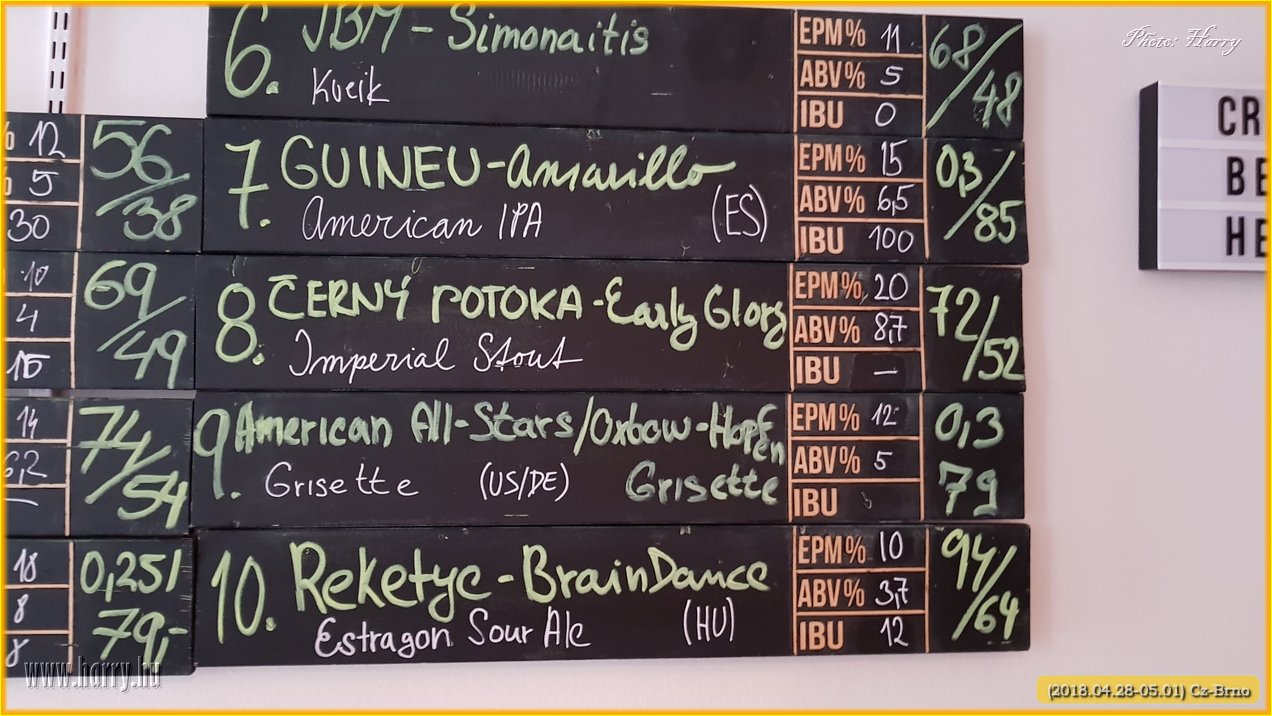 Photo: Harry
6. JBM - Simonaitis
Kveik
EPM% 11
ABV% 5
IBU 0
68/48
12
5
30
56/38
7. GUINEU - Amarillo
American IPA (ES)
EPM% 15
ABV% 6,5
IBU 100
0,3/85
10
4
15
69/49
8. ČERNÝ POTOKA - Early Glory
Imperial Stout
EPM% 20
ABV% 8,7
IBU —
72/52
14
6,2
74/54
9. American All-Stars/Oxbow - Hopfen
Grisette (US/DE) Grisette
EPM% 12
ABV% 5
IBU
0,3
79
18
8
0,25l
79,-
10. Reketye - BrainDance
Estragon Sour Ale (HU)
EPM% 10
ABV% 3,7
IBU 12
94/64
CR
BE
HE
www.harry.hu
(2018.04.28-05.01) Cz-Brno